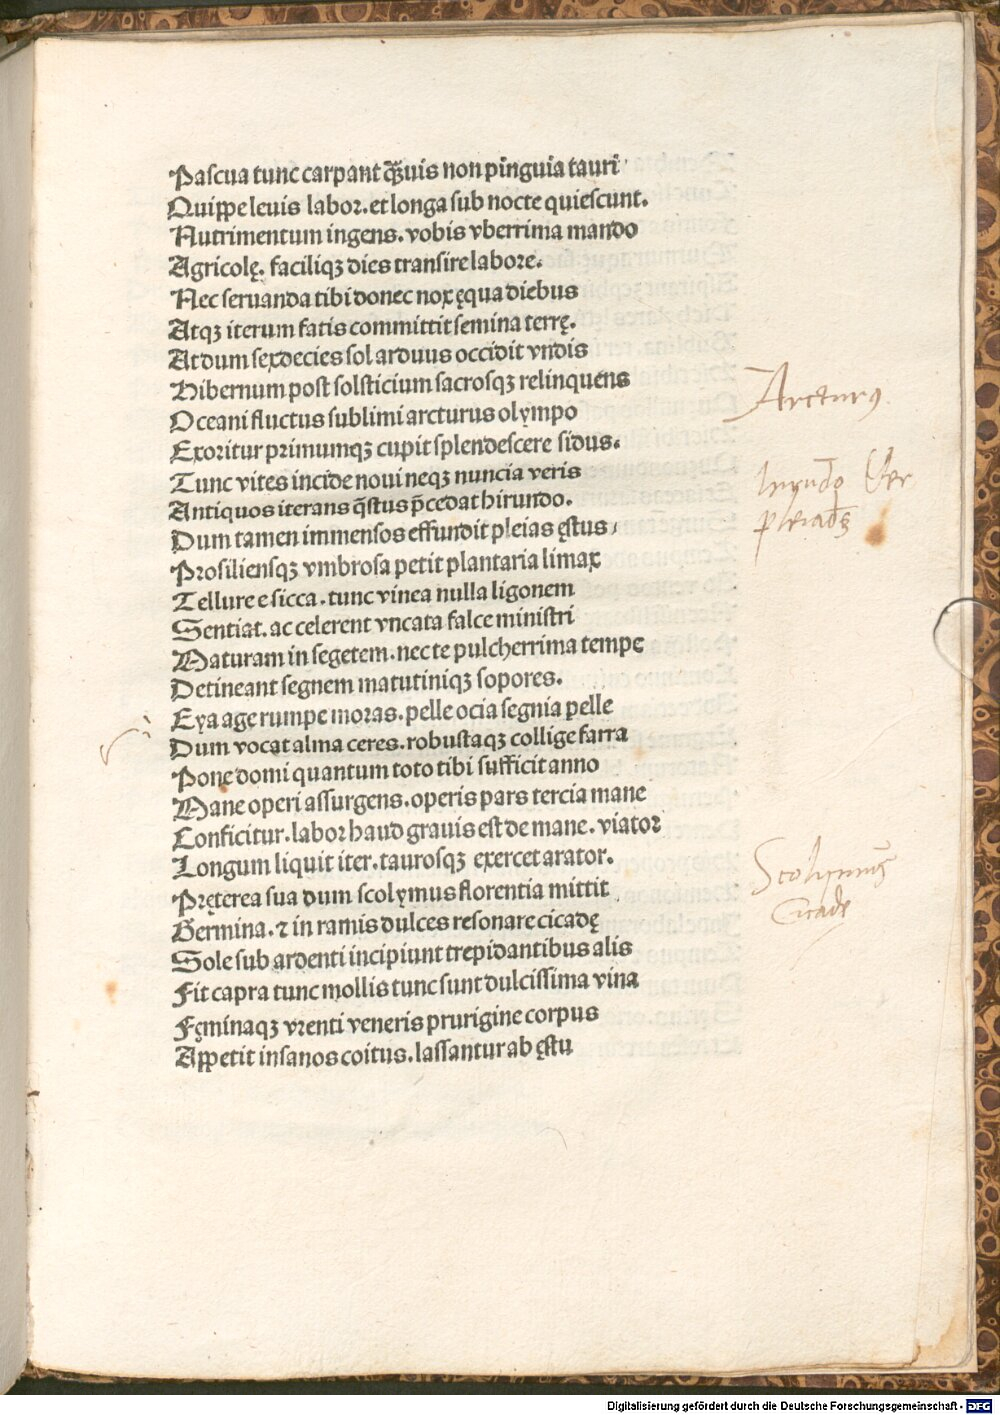 Pascua tunc carpant q̃uis non pinguia tauri
Quippe leuis labor. et longa sub nocte quiescunt.
Nutrimentum ingens. vobis vberrima mando
Agricolę. faciliqꝫ dies transire labore.
Nec seruanda tibi donec nox ęqua diebus
Atqꝫ iterum fatis committit semina terrę.
At dum sexdecies sol arduus occidit vndis
Hibernum post solsticium sacrosqꝫ relinquens
Arcturꝯ
Oceani fluctus sublimi arcturus olympo
Exoritur primumqꝫ cupit splendescere sidus.
Tunc vites incide noui neqꝫ nuncia veris
hirundo Ver
Antiquos iterans q̃stus p̃cedat hirundo.
pleiades
Dum tamen immensos effundit pleias ęstus,
Prosiliensqꝫ vmbrosa petit plantaria limax
Tellure e sicca. tunc vinea nulla ligonem
Sentiat. ac celerent vncata falce ministri
Maturam in segetem. nec te pulcherrima tempe
Detineant segnem matutiniqꝫ sopores.
Eya age rumpe moras. pelle ocia segnia pelle
Dum vocat alma ceres. robustaqꝫ collige farra
Pone domi quantum toto tibi sufficit anno
Mane operi assurgens. operis pars tercia mane
Conficitur. labor haud grauis est de mane. viator
Longum liquit iter. taurosqꝫ exercet arator.
Scolymus
Pręterea sua dum scolymus florentia mittit
Cicade
Germina. ⁊ in ramis dulces resonare cicadę
Sole sub ardenti incipiunt trepidantibus alis
Fit capra tunc mollis tunc sunt dulcissima vina
Fęminaqꝫ vrenti veneris prurigine corpus
Appetit insanos coitus. lassantur ab ęstu
Digitalisierung gefördert durch die Deutsche Forschungsgemeinschaft - DFG